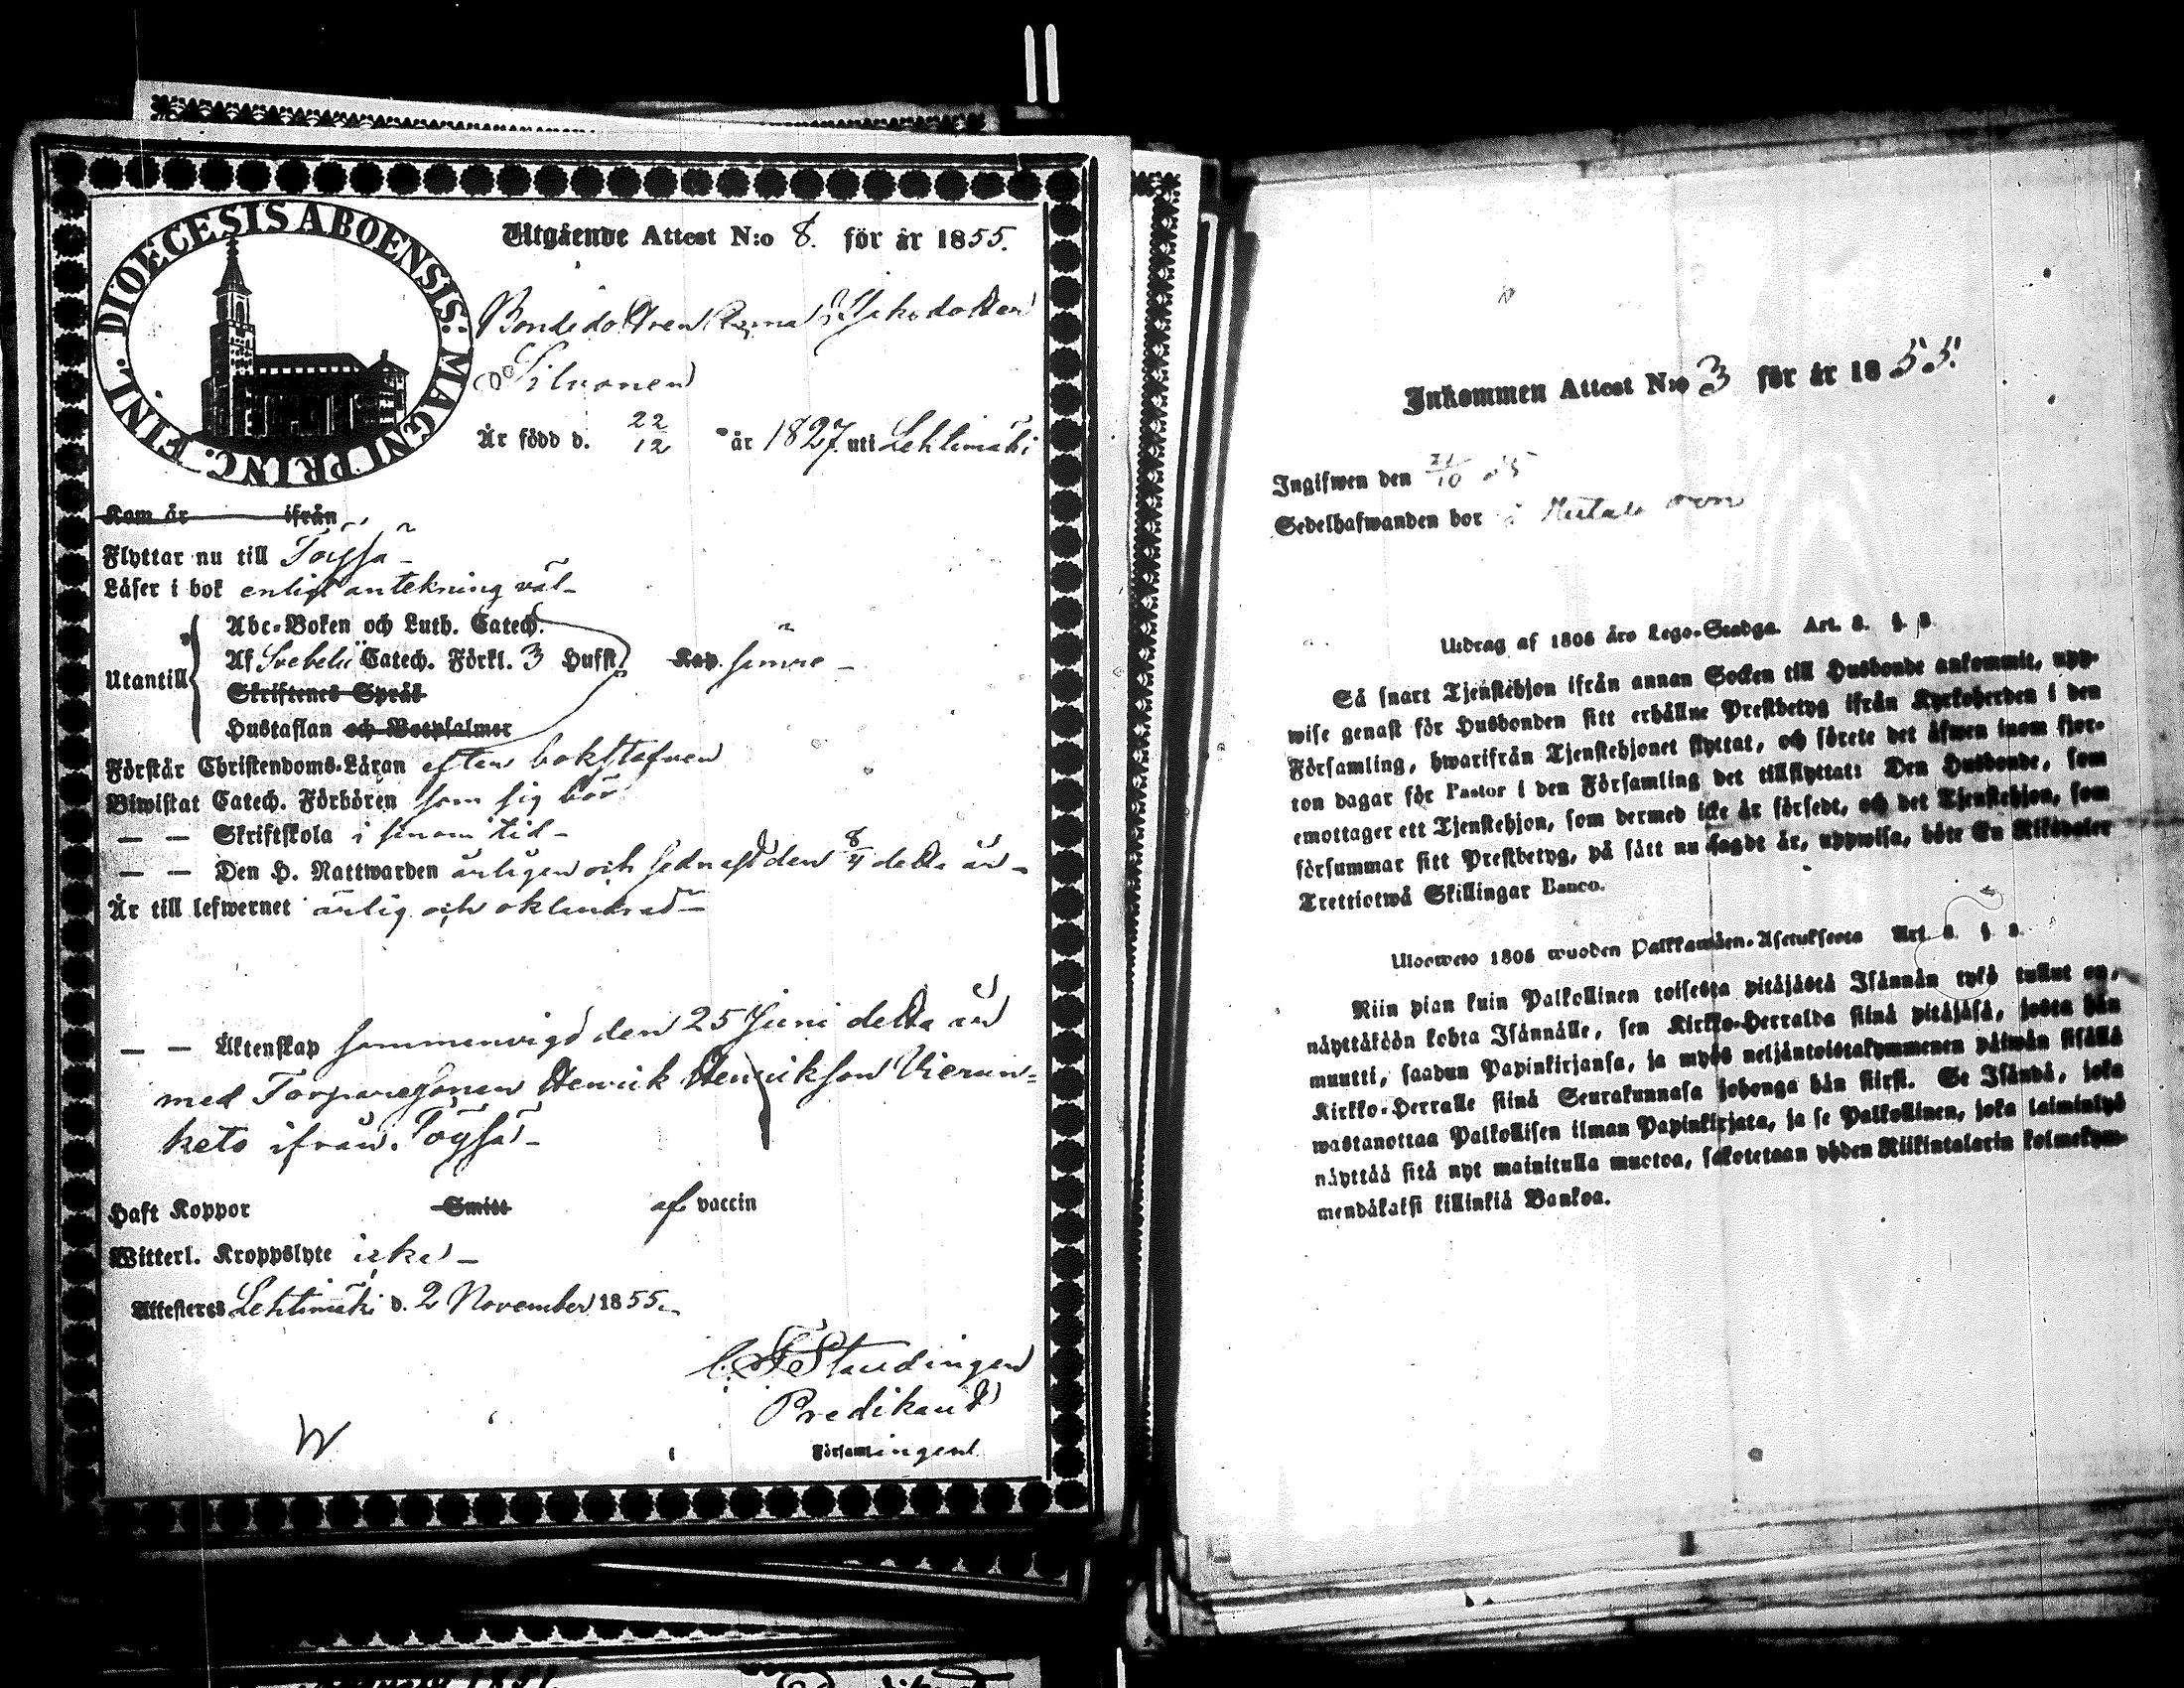 DIOECESIS ABOENSIS. MAGNI PRINC. FINL.
Utgående Attest N:o 8. för år 1855.
Bondedottren Jakodotter
Silvonen
Är född d. 22/12 år 1827 uti Lehtimäki
Kom år ifrån
Flyttar nu till Töysä
Läser i bok enligt antekning väl
Utantill
Abc-Boken och Luth. Catech.
Af Svebelii Catech. Förkl. 3 Hufst. Kap. sämre
Skriftenes Språk
Hustaflan och Botpsalmer
Förstår Christendoms-Läran efter bokstafven
Biwistat Catech. Förhören som sig bör
— — Skriftskola i sinom tid
— — Den H. Nattwarden årligen och sednast den 8/4 detta år
Är till lefwernet ärlig och oklandrad
— — Äktenskap sammanvigd den 25 Juni detta år
med Torparesonen Henrik Henrikson Vierun=
keto ifrån Töysä
Haft Koppor Smitt af vaccin
Witterl. Kroppslyte icke
Attesteras Lehtimäki d. 2 November 1855.
Standinger
Predikant
Församlingen
Inkommen Attest N:o 3 för år 1855.
Ingifwen den
Sedelhafwanden bor i
Utdrag af 1805 års Lego-Stadga. Art. 3. §. 3.
Så snart Tjenstehjon ifrån annan Socken till Husbonde ankommit, upp-
wise genast för Husbonden sitt erhållne Prestbetyg ifrån Kyrkoherden i den
Församling, hwarifrån Tjenstehjonet flyttat, och förete det äfwen inom fjor-
ton dagar för Pastor i den Församling det tillflyttat: Den Husbonde, som
emottager ett Tjenstehjon, som dermed icke är försedt, och det Tjenstehjon, som
försummar sitt Prestbetyg, på sätt nu sagdt är, uppwisa, böte En Riksdaler
Trettiotwå Skillingar Banco.
Ulosweto 1805 wuoden Palkkawäen-Asetuksesta Art. 3. §. 3.
Niin pian kuin Palkollinen toisesta pitäjästä Isännän tykö tullut on,
näyttäköön kohta Isännälle, sen Kirkko-Herralda siinä pitäjäsä, josta hän
muutti, saadun Papinkirjansa, ja myös neljäntoistakymmenen päiwän sisällä
Kirkko-Herralle siinä Seurakunnasa johonga hän siirsi. Se Isändä, joka
wastanottaa Palkollisen ilman Papinkirjata, ja se Palkollinen, joka laiminlyö
näyttää sitä nyt mainitulla muotoa, sakotetaan yhden Riikintalarin kolmekym-
mendäkaksi killinkiä Bankoa.